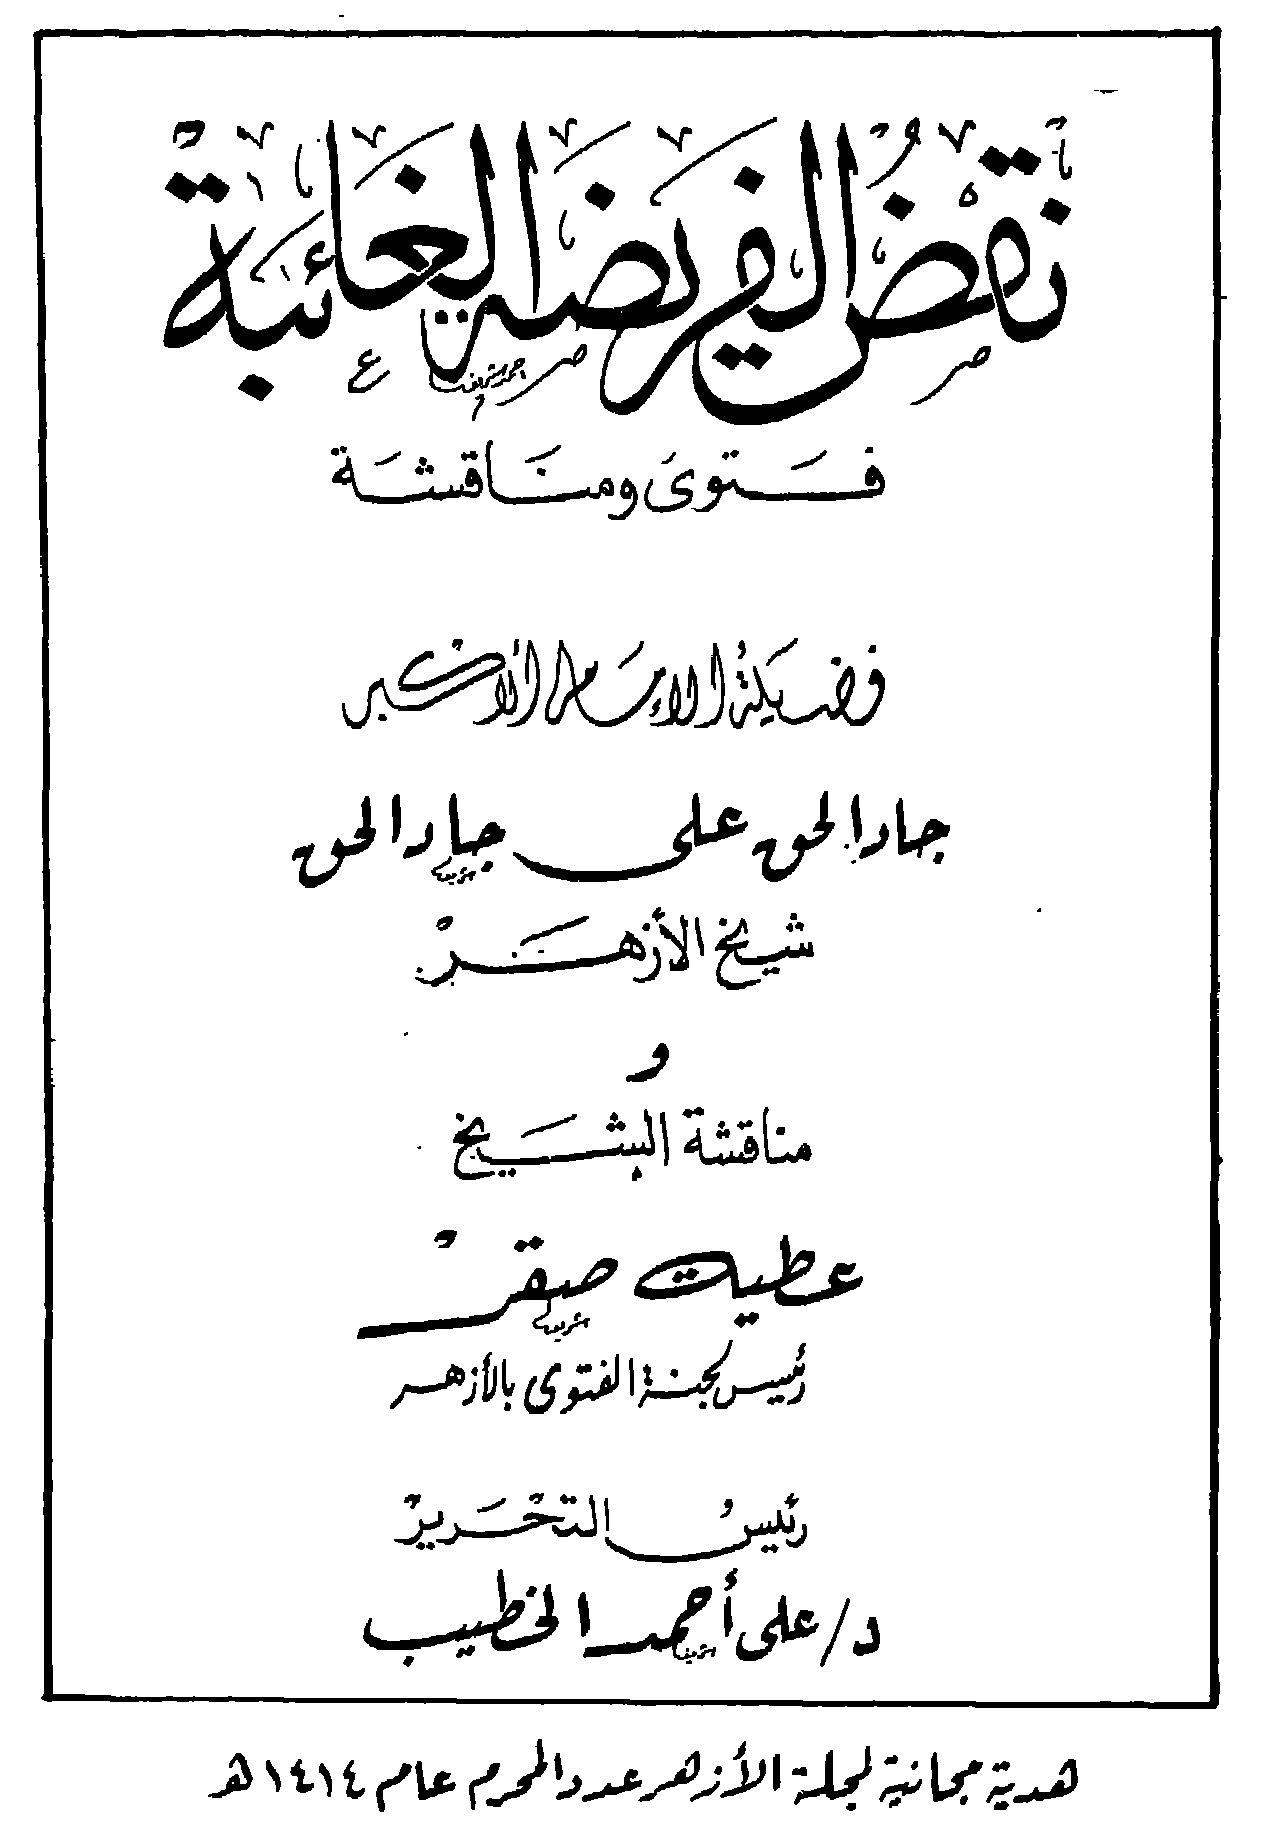 نقض الفريضة الغائبة
فتوى ومناقشة
فضيلة الإمام الأكبر
جاد الحق على جاد الحق
شيخ الأزهر
و
مناقشة الشيخ
عطية صقر
رئيس لجنة الفتوى بالأزهر
رئيس التحرير
د/على أحمد الخطيب
هدية مجانية لمجلة الأزهر عدد المحرم عام ١٤١٤هـ